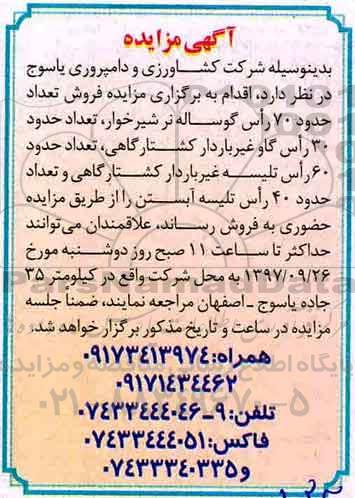 آگهی مزایده
بدینوسیله شرکت کشاورزی و دامپروری یاسوج
در نظر دارد، اقدام به برگزاری مزایده فروش تعداد
حدود ۷۰ رأس گوساله نر شیرخوار، تعداد حدود
۳۰ رأس گاو غیرباردار کشتارگاهی، تعداد حدود
۶۰ رأس تلیسه غیرباردار کشتارگاهی و تعداد
حدود ۴۰ رأس تلیسه آبستن را از طریق مزایده
حضوری به فروش رساند، علاقمندان می‌توانند
حداکثر تا ساعت ۱۱ صبح روز دوشنبه مورخ
۱۳۹۷/۰۹/۲۶ به محل شرکت واقع در کیلومتر ۳۵
جاده یاسوج ـ اصفهان مراجعه نمایند، ضمناً جلسه
مزایده در ساعت و تاریخ مذکور برگزار خواهد شد.
همراه: ۰۹۱۷۳۴۱۳۹۷۴
۰۹۱۷۱۴۳۴۴۶۲
تلفن: ۹-۰۷۴۳۳۴۴۴۰۴۶
فاکس: ۰۷۴۳۳۴۴۴۰۵۱
و ۰۷۴۳۳۳۴۰۳۳۵